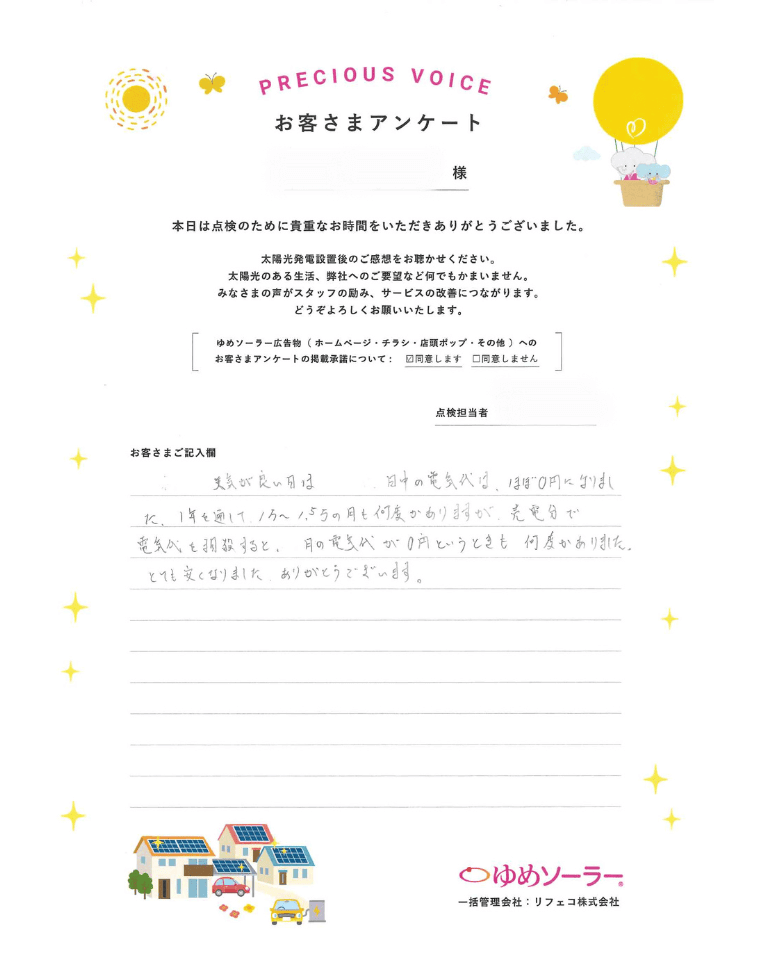 PRECIOUS VOICE
お客さまアンケート
様
本日は点検のために貴重なお時間をいただきありがとうございました。
太陽光発電設置後のご感想をお聴かせください。
太陽光のある生活、弊社へのご要望など何でもかまいません。
みなさまの声がスタッフの励み、サービスの改善につながります。
どうぞよろしくお願いいたします。
ゆめソーラー広告物（ ホームページ・チラシ・店頭ポップ・その他 ）への
お客さまアンケートの掲載承諾について： ☑同意します ☐同意しません
点検担当者
お客さまご記入欄
天気が良い日は 日中の電気代は、ほぼ0円になりまし
た。1年を通して、1万〜1.5万の月も何度かありますが、売電分で
電気代を相殺すると、月の電気代が0円というときも 何度かありました。
とても安くなりました。ありがとうございます。
ゆめソーラー®
一括管理会社：リフェコ株式会社